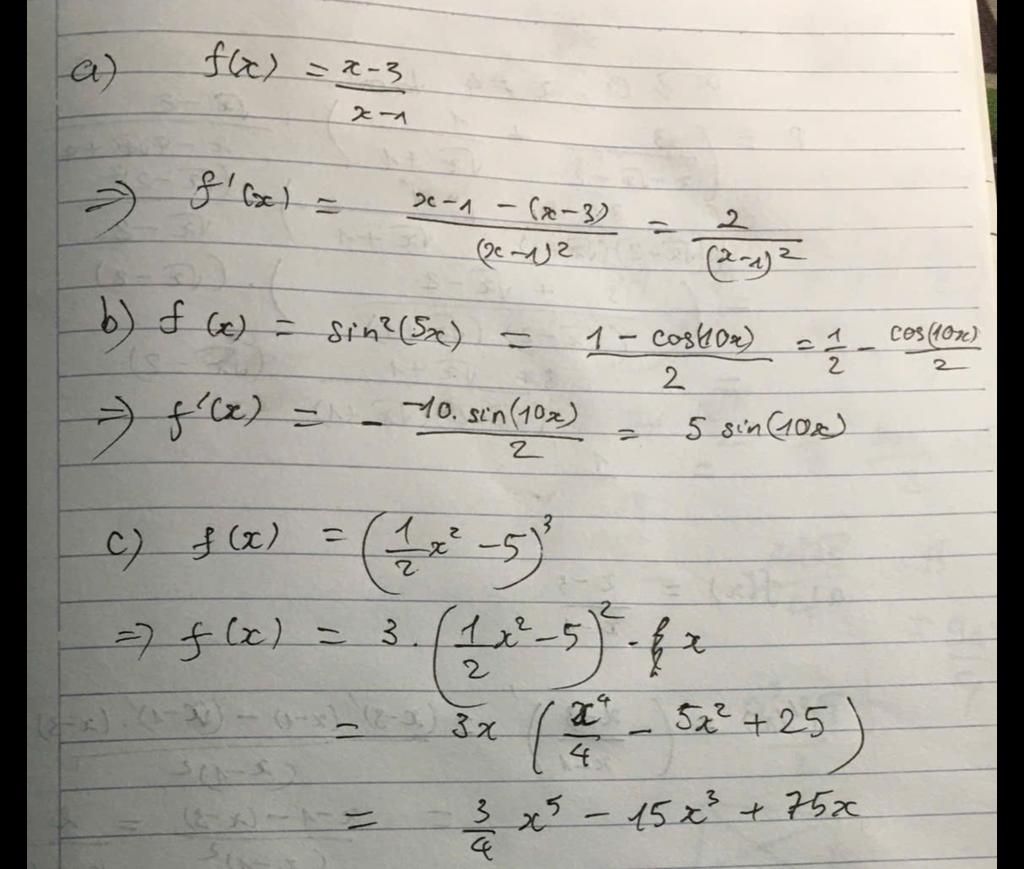 a) f(x) = \frac{x-3}{x-1}
⇒ f'(x) = \frac{x-1-(x-3)}{(x-1)^2} = \frac{2}{(x-1)^2}
b) f(x) = sin²(5x) = \frac{1-cos(10x)}{2} = \frac{1}{2} - \frac{cos(10x)}{2}
⇒ f'(x) = - \frac{-10. sin(10x)}{2} = 5 sin(10x)
c) f(x) = (\frac{1}{2}x² - 5)³
⇒ f(x) = 3. (\frac{1}{2}x² - 5)² . x
= 3x (\frac{x⁴}{4} - 5x² + 25)
= \frac{3}{4} x⁵ - 15x³ + 75x